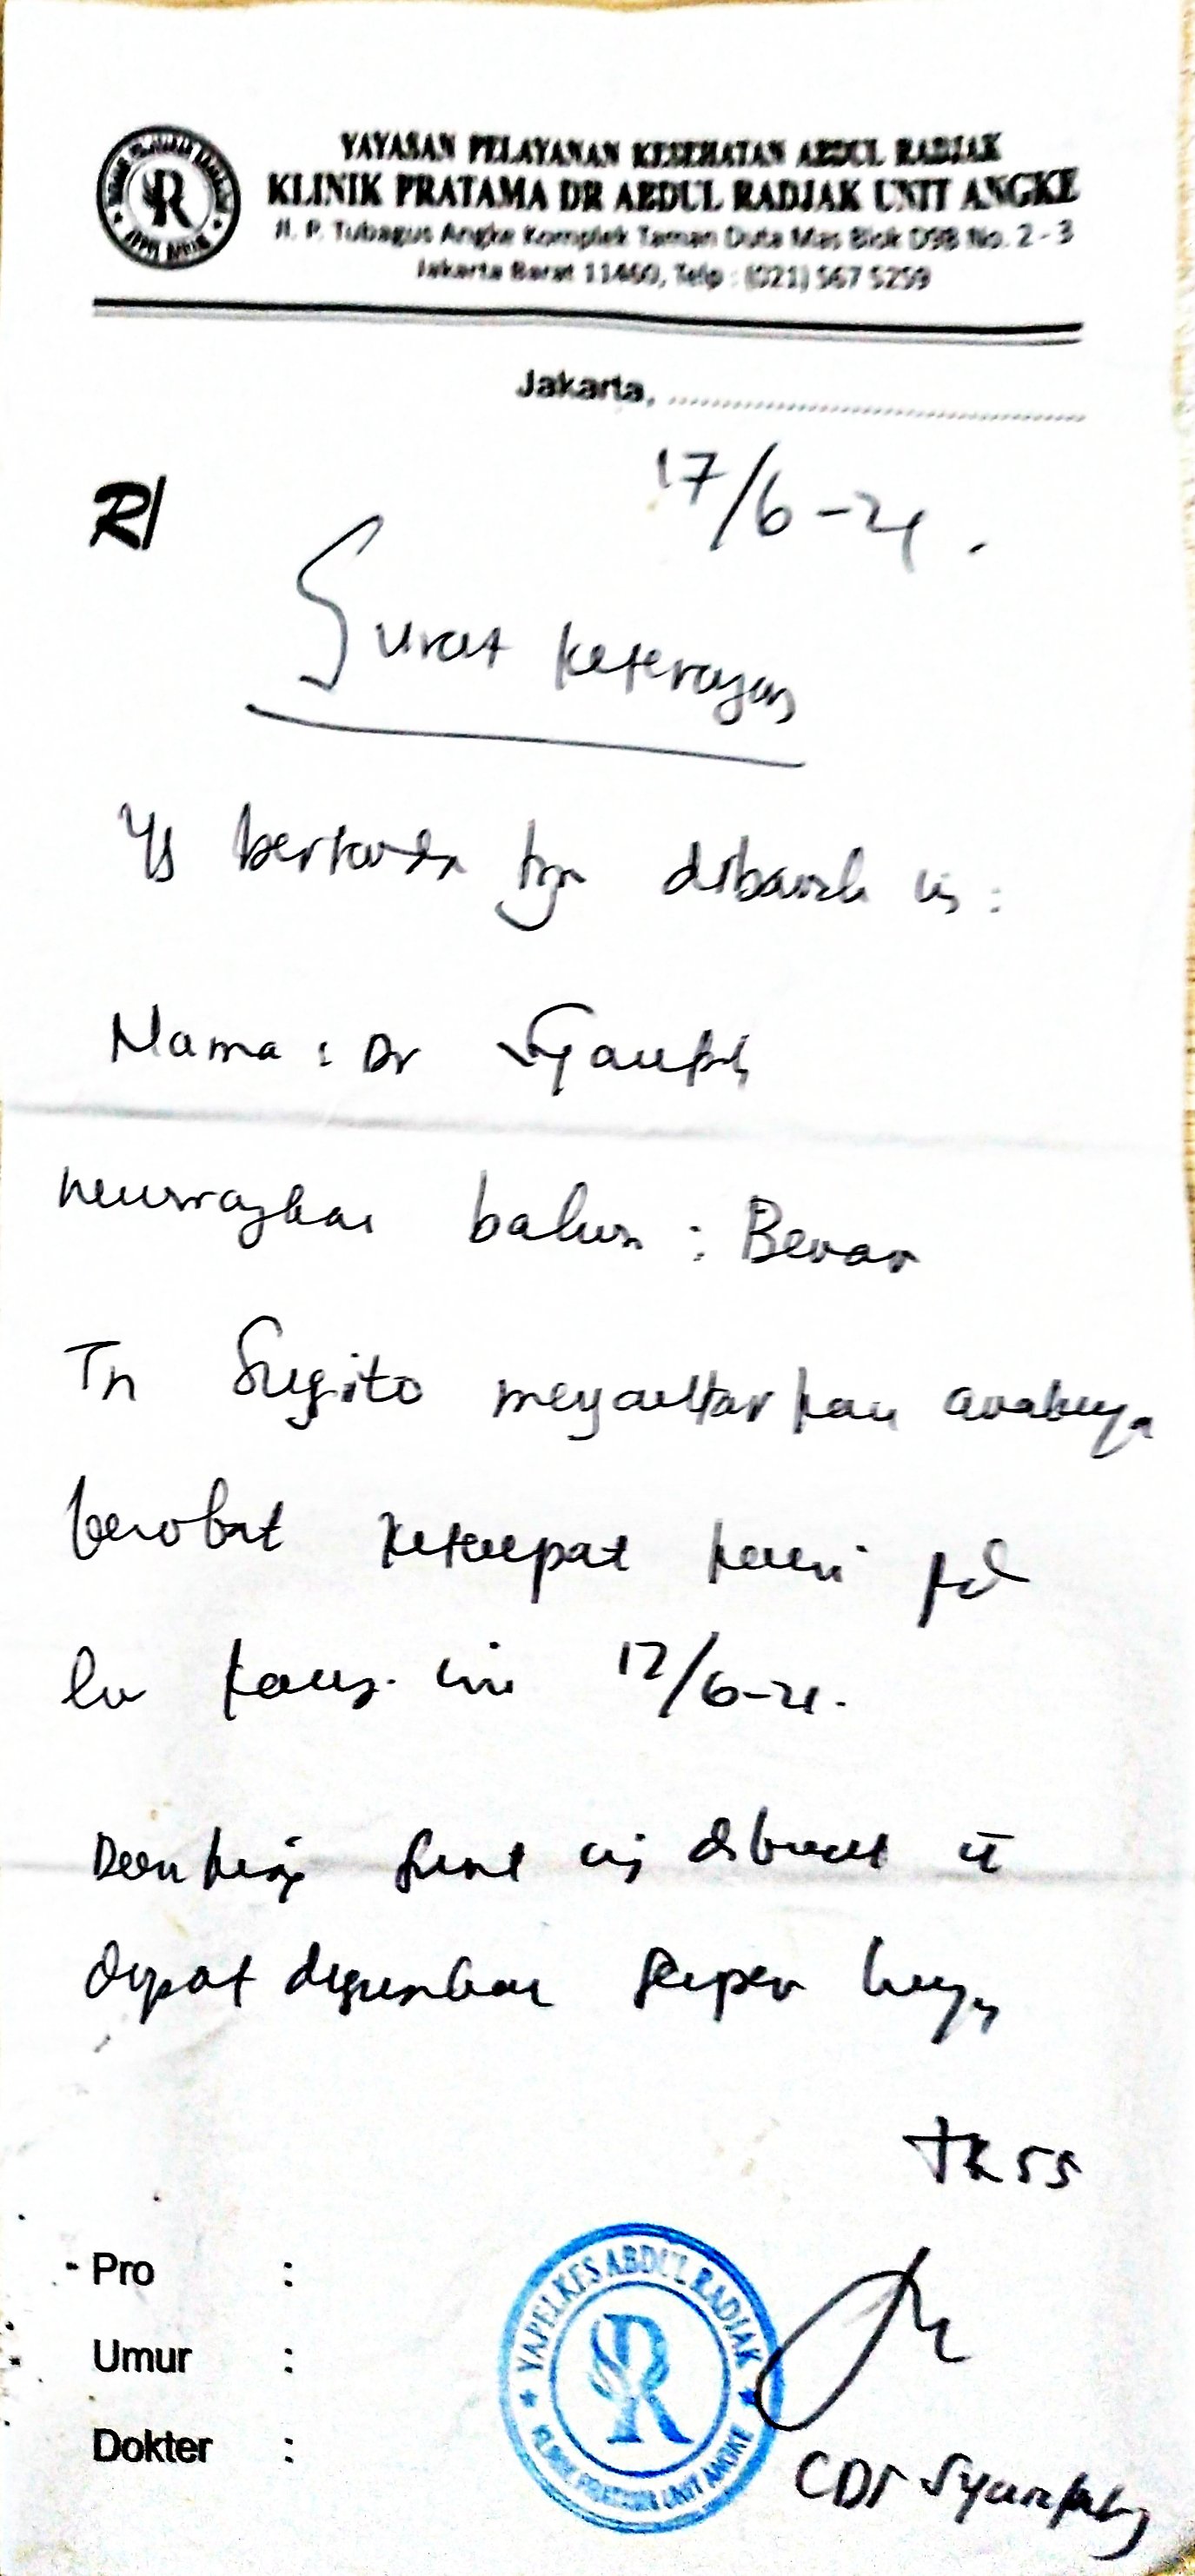 YAYASAN PELAYANAN KESEHATAN ABDUL RADJAK
KLINIK PRATAMA DR ABDUL RADJAK UNIT ANGKE
Jl. P. Tubagus Angke Komplek Taman Duta Mas Blok D9B No. 2 - 3
Jakarta Barat 11460, Telp : (021) 567 5259
Jakarta,
17/6-21.
R/
Surat Keterangan
Yg bertanda tgn dibawah ini :
Nama : Dr
menerangkan bahwa : Benar
Tn Sugito mengantarkan anaknya
berobat ketempat kami pd
hr kamis ini 17/6-21.
Demikian surat ini dibuat u
dapat digunakan
TRSS
Pro :
Umur :
Dokter :
YAPELKES ABDUL RADJAK
R
KLINIK PRATAMA UNIT ANGKE